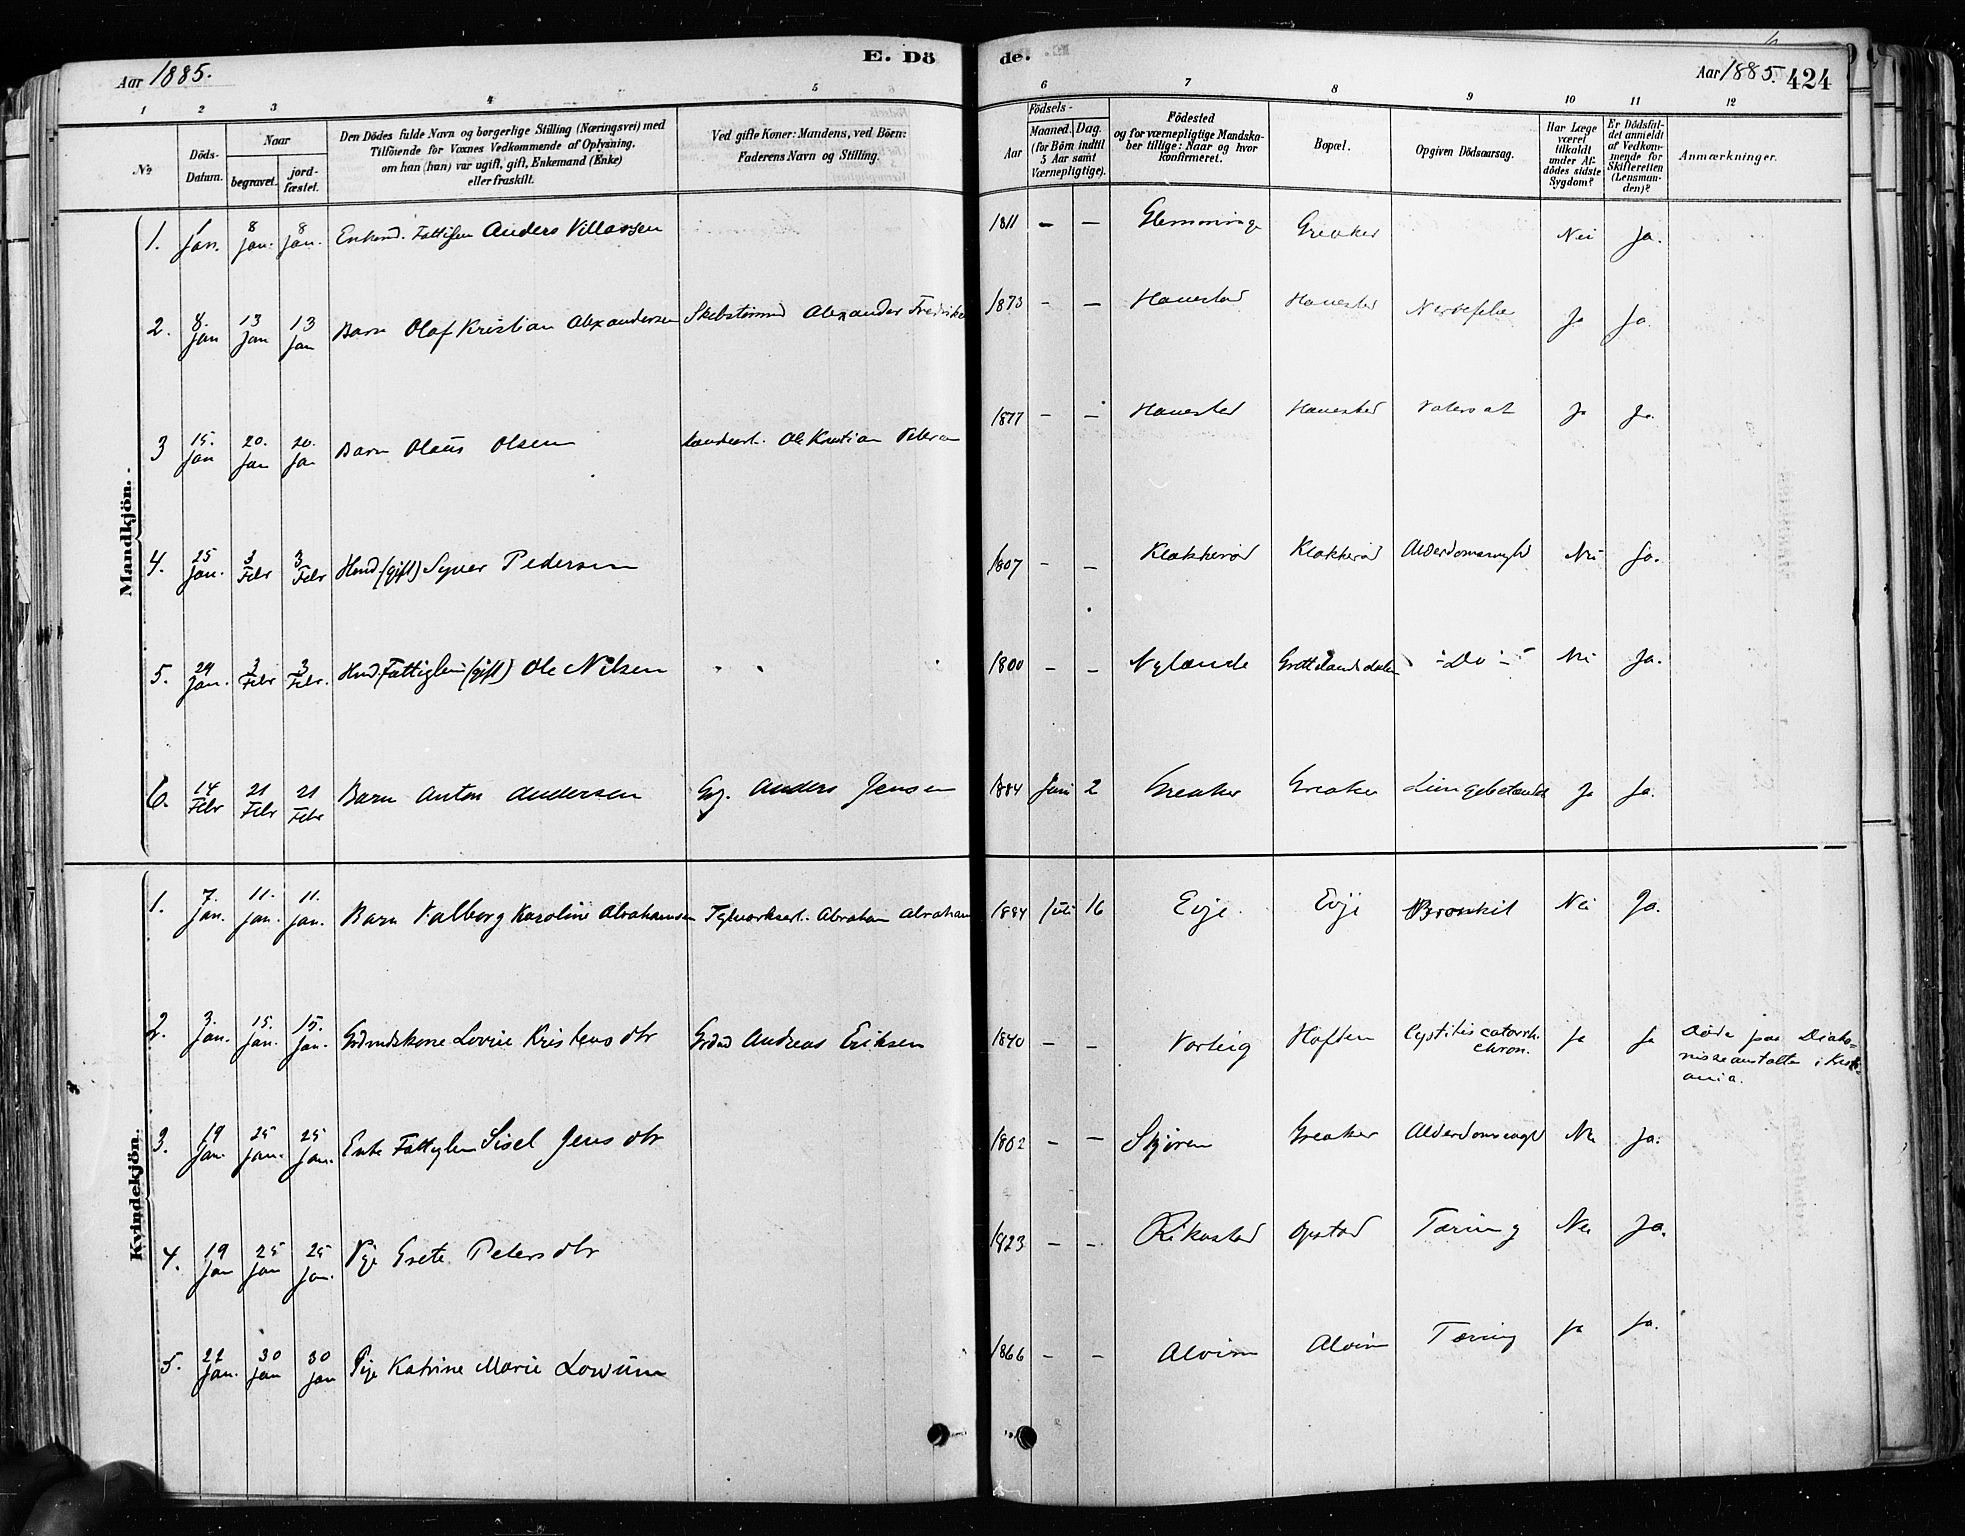 E. Döde.
Aar 1885.
Aar 1885.
424
1 2 3 4 5 6 7 8 9 10 11 12
No
Döds-Datum.
Naar
begravet.
jordfæstet.
Den Dödes fulde Navn og borgerlige Stilling (Næringsvei) med
Tilföiende for Voxnes Vedkommende af Oplysning,
om han (hun) var ugift, gift, Enkemand (Enke)
eller fraskilt.
Ved gifte Koner: Mandens, ved Börn:
Faderens Navn og Stilling.
Födsels-
Aar
Maaned. Dag.
(for Börn indtil
5 Aar samt
Værnepligtige).
Födested
og for værnepligtige Mandska-
ber tillige: Naar og hvor
konfirmeret.
Bopæl.
Opgiven Dödsaarsag.
Har Læge
været
tilkaldt
under Af-
dödes sidste
Sygdom?
Er Dödsfal-
det anmeldt
af Vedkom-
mende for
Skifteretten
(Lensman-
den)?
Anmærkninger.
Mandkjön.
1. Jan. 8 Jan. 8 Jan. Enkmd. Anders Villassen 1811 — — Glemminge Greaker Nei Ja.
2. 8. Jan 13 Jan 13 Jan Barn Olaf Kristian Alexandersen Alexander 1873 - — Hauestad Hauestad Ja Ja.
3 15. Jan 20. Jan 20. Jan Barn Olaus Olsen Ole Kristian 1877 — — Hauestad Hauestad Ja Ja.
4. 25 Jan. 3 Febr 3 Febr Hmd (gift) Syver Pedersen 1807 - - Klakkerød Klakkerød Nei Ja.
5. 29 Jan. 3 Febr 3 Febr. Hmd. Fattiglem (gift) Ole Nilsen 1800 - - Nylænde - Do - Nei Ja.
6. 14 Febr 21 Febr 21 Febr Barn Anton Andersen Anders Jensen 1884 Juni 2 Greaker Greaker Ja Ja.
Kvindekjön.
1. 7. Jan. 11. Jan. 11. Jan. Barn Valborg Karoline Abrahamsen Abraham 1884 Juli 16 Evje. Evje Bronkit Nei Ja.
2. 3. Jan. 15. Jan. 15. Jan. Grdmdskone Lovise Kristensdtr Grdmd Andreas Eriksen 1840 - - Varteig Haften Cystitis catarrh. chron. Ja Ja Døde paa Diako-
nisseanstalten i Kristi-
ania.
3. 19 Jan 25 Jan. 25 Jan. Enke Fattiglem Sisel Jensdtr 1802 - - Skjøren Greaker Nei Ja.
4. 19 Jan 25 Jan 25 Jan. Pige Grete Petersdtr 1823 - - Rikastad Opstad Tæring Nei Ja.
5. 22 Jan. 30 Jan 30 Jan Pige Katrine Marie 1866 - - Alvim Alvim Tæring Ja Ja.